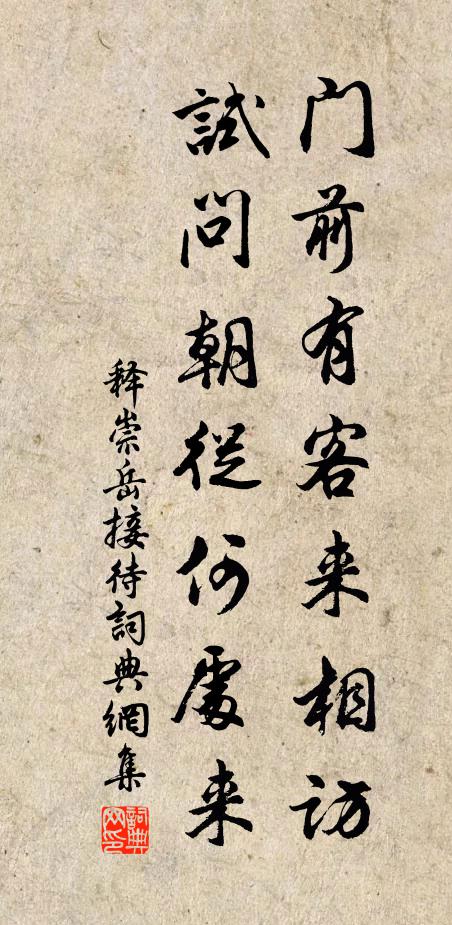 门前有客来相访
試問朝從何處来
释崇岳接待詞典網集
詞典网印